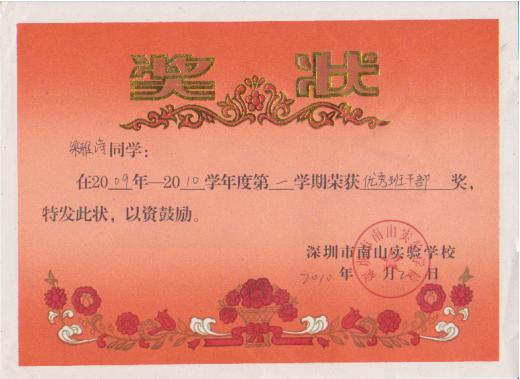 奖状
梁雅诗同学：
在2009年—2010学年度第一学期荣获优秀班干部奖，
特发此状，以资鼓励。
深圳市南山实验学校
2010年 月 日